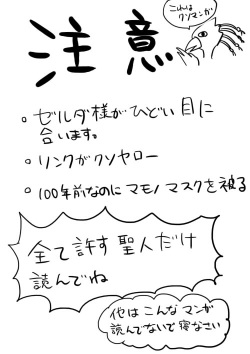 これは
クソマンガ
注意
。ゼルダ様がひどい目に
合います。
。リンクがクソヤロー
。100年前なのにマモノマスクを被る
全て許す聖人だけ
読んでね
他はこんなマンガ
読んでないで寝なさい